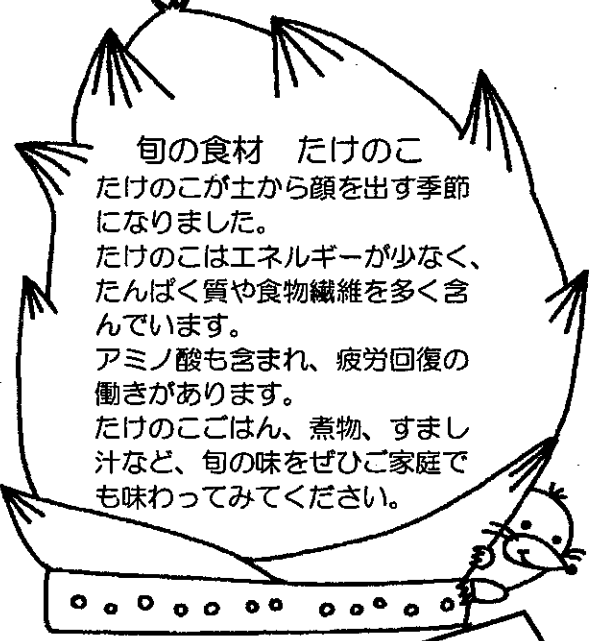 旬の食材　たけのこ
たけのこが土から顔を出す季節
になりました。
たけのこはエネルギーが少なく、
たんぱく質や食物繊維を多く含
んでいます。
アミノ酸も含まれ、疲労回復の
働きがあります。
たけのこごはん、煮物、すまし
汁など、旬の味をぜひご家庭で
も味わってみてください。